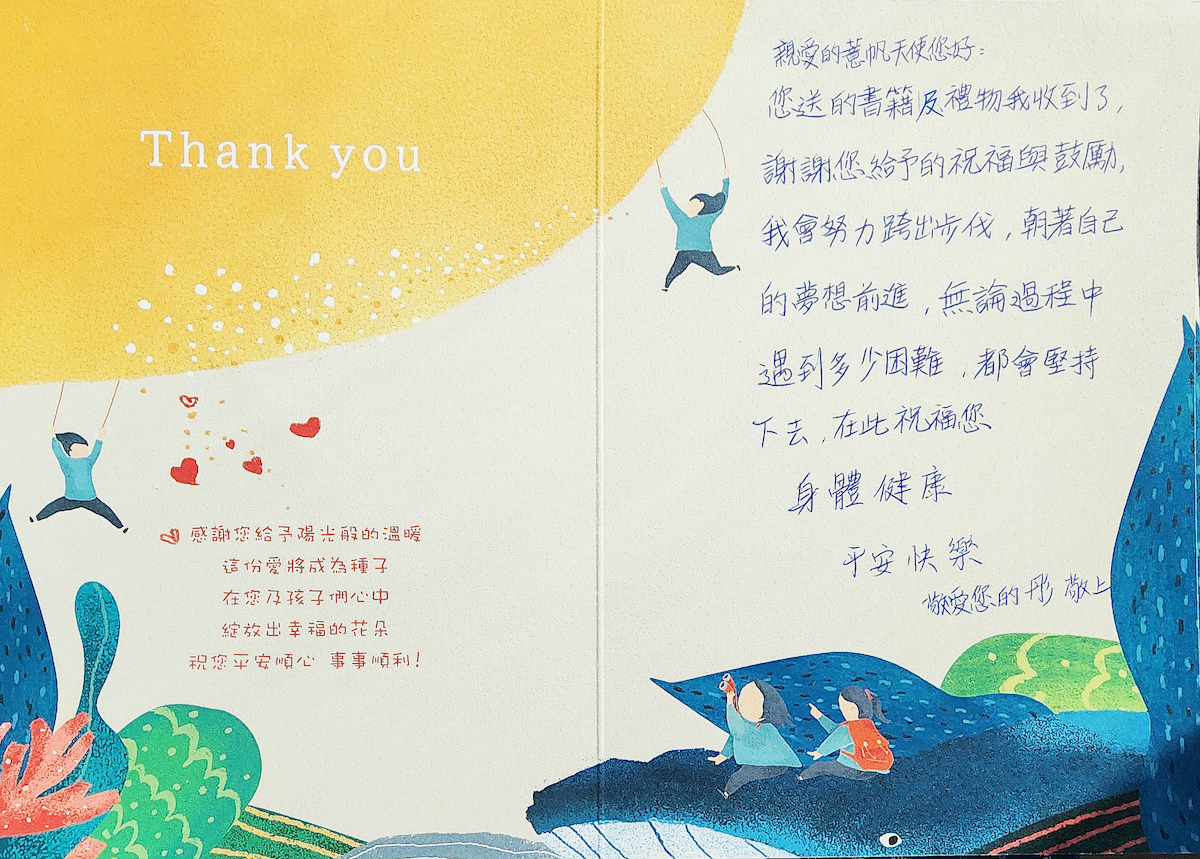 Thank you
感謝您給予陽光般的溫暖
這份愛將成為種子
在您及孩子們心中
綻放出幸福的花朵
祝您平安順心 事事順利!
親愛的薏帆天使您好:
您送的書籍及禮物我收到了,
謝謝您給予的祝福與鼓勵,
我會努力跨出步伐,朝著自己
的夢想前進,無論過程中
遇到多少困難,都會堅持
下去,在此祝福您
身體健康
平安快樂
敬愛您的彤 敬上